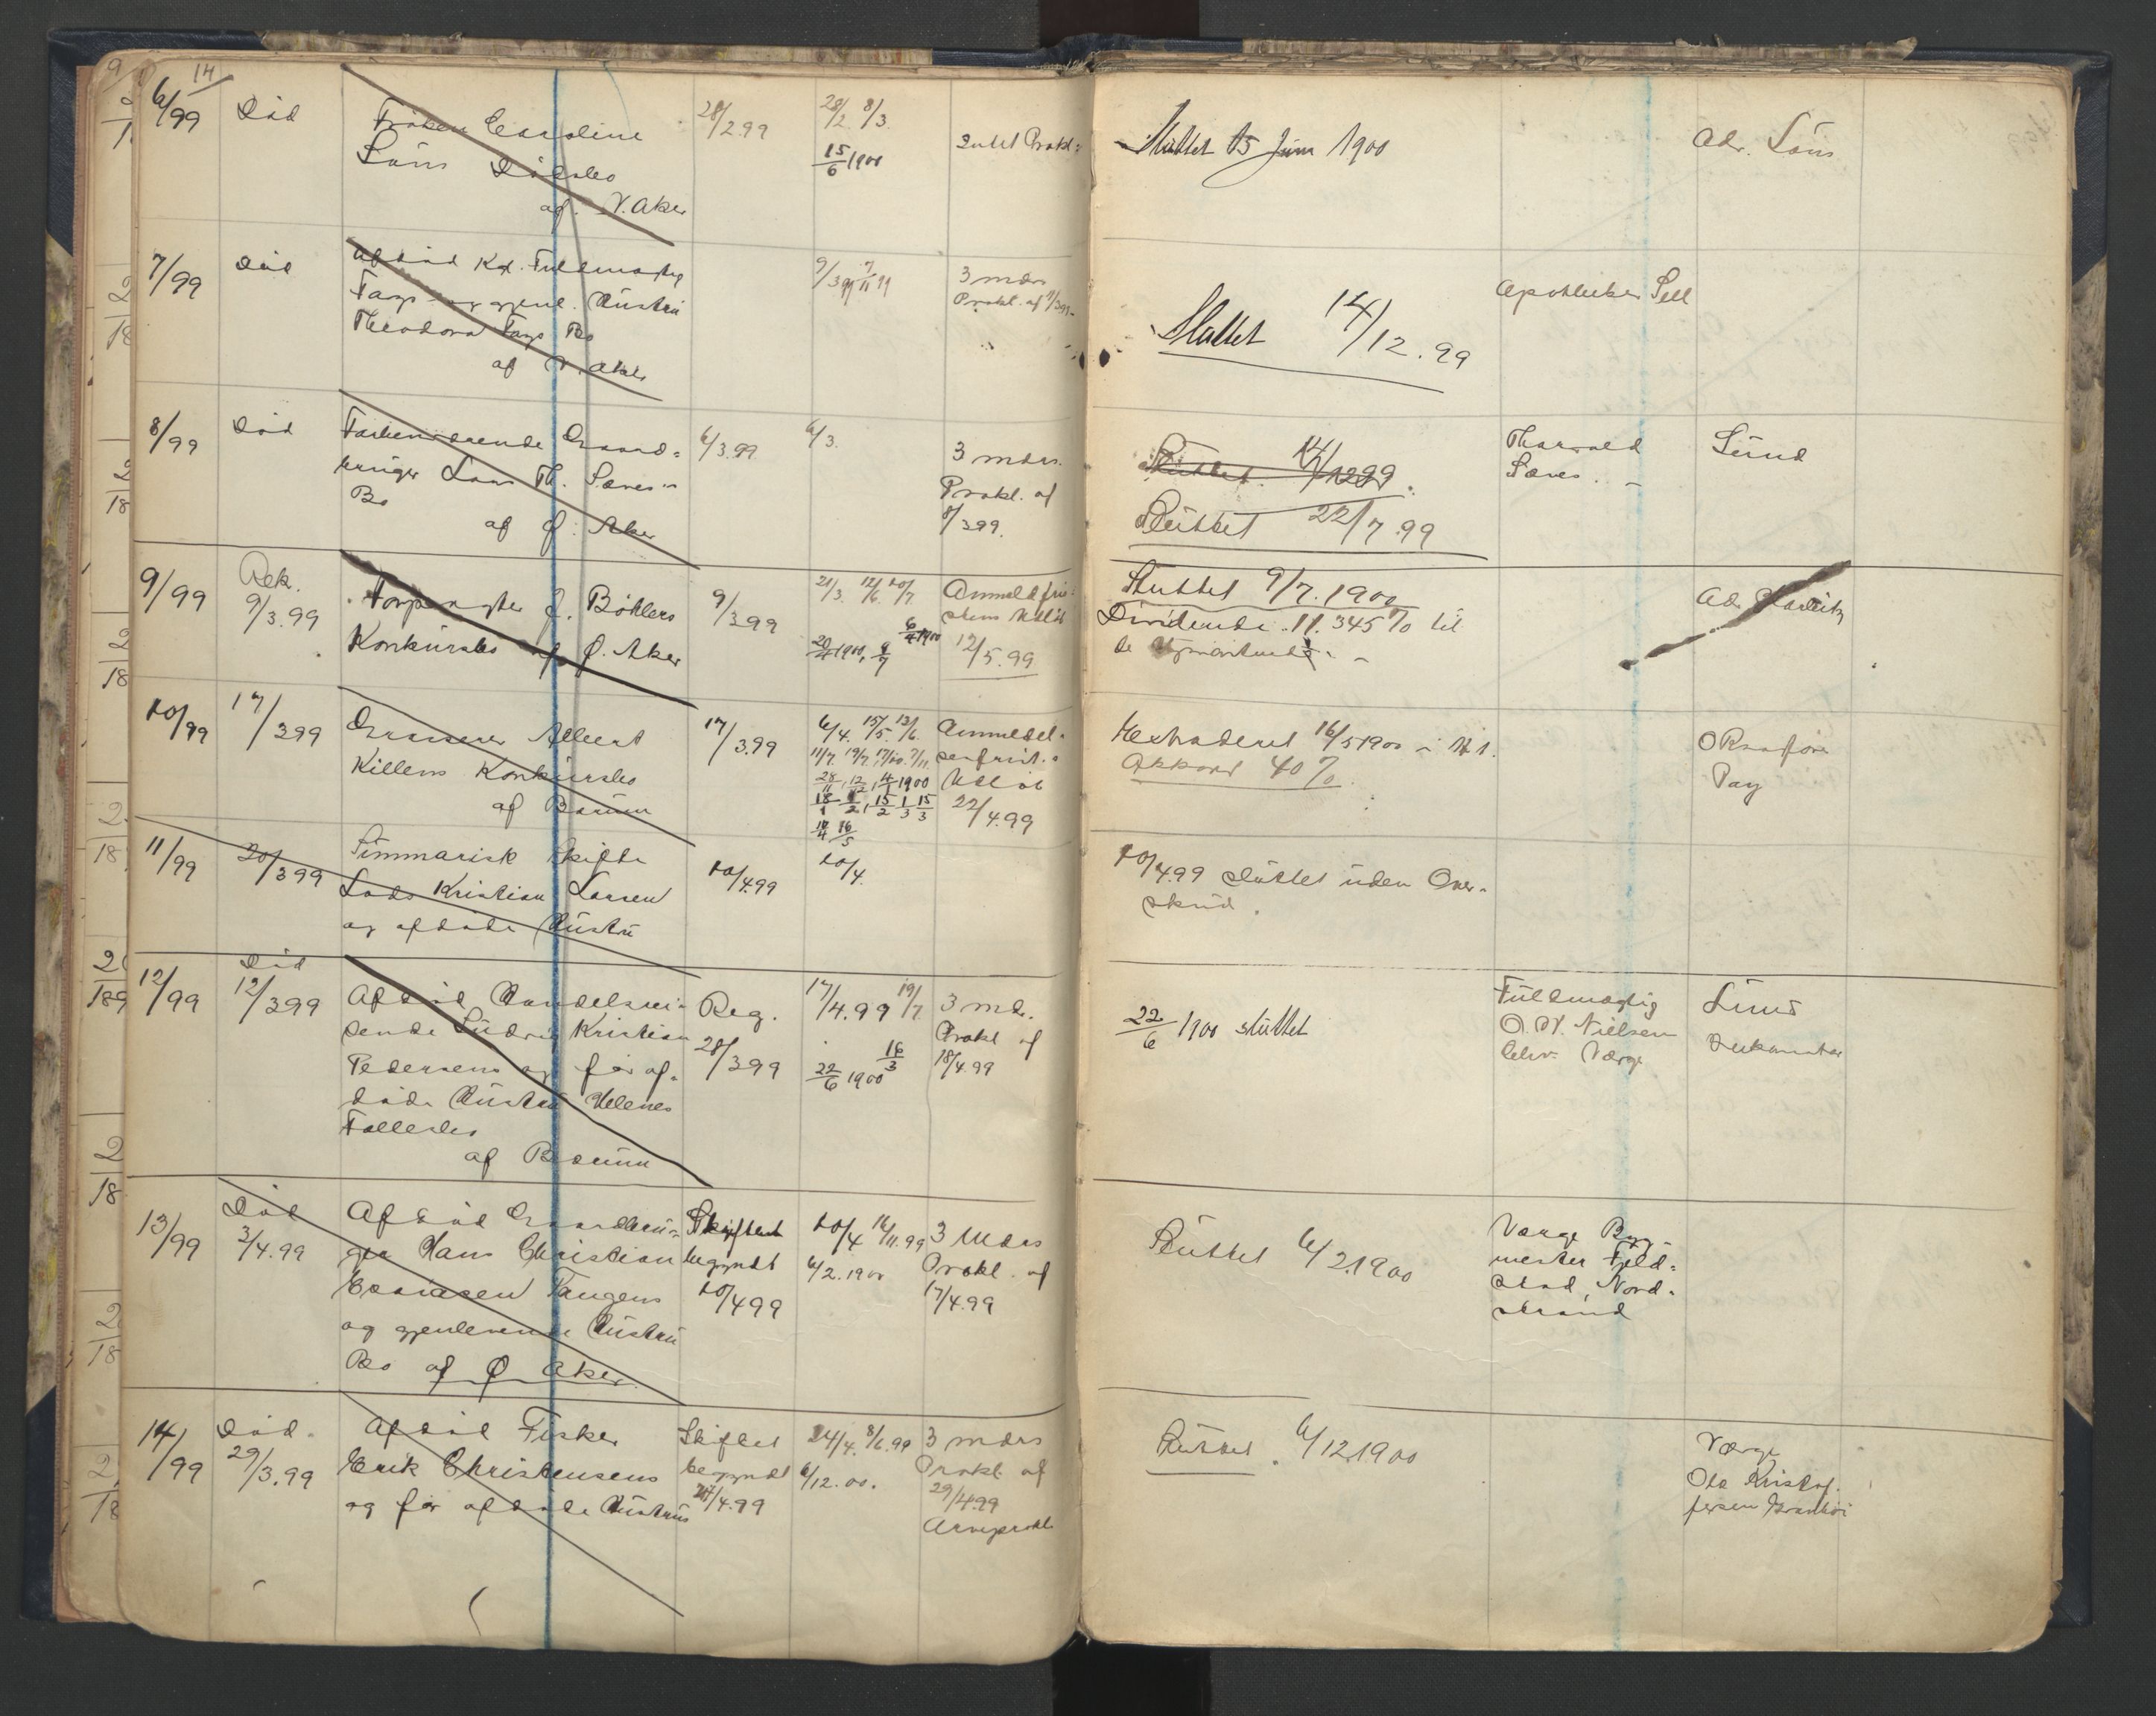 14
6/99 Död Fröken Caroline 28/2.99 28/2 8/3.
Löns Dödsbo 15/6 1900 Intet Prokl:
af. V. Aker
Sluttet 15 Juni 1900
Adv. Löns
7/99 Död Afdöd Kgl. Fuldmægtig 9/3 99 7/11 99 3 mdrs
og gjenl. Hustru Prokl. af 11/3.99.
Theodora Bo
af V. Aker
Sluttet 14/12.99
Apotheker Sell
8/99 Död Forhenværende Gaard= 6/3.99 6/3. 3 mdrs.
bruger Lars Th. Sæves Prokl. af
Bo 8/3 99.
af Ø. Aker
Sluttet. 14/12 99.
Sluttet 22/7.99
Thorvald
Sæves.
Lund
9/99 Rek. 9/3.99 J. Böhlers 9/3 99 21/3. 12/6. 10/7. Anmeldfri-
Konkursbo af Ø. Aker 20/4 1900, 9/7 stens Udlöb
12/5.99
Sluttet 9/7.1900
Dividende 11.345 % til
de
Adv.
10/99 17/3 99 Grosserer Albert 17/3.99 6/4. 15/5. 13/6. Anmeldel-
Killens Konkursbo 11/7. 19/7. 17/10. 7/11. sesfrist.s
af Bærum 28/11, 12/12, 4/1 1900 Udlöb
18/1 1/2, 15/2 1/3 15/3 22/4.99
16/5
Extraderet 16/5 1900 i H.t.
Akkord 40 %.
O Rsagförer
Pay
11/99 20/3 99 Summarisk Skifte 10/4.99 10/4.
Lods Kristian Larsen
og afdöde Hustru
10/4.99 sluttet uden Over-
skud.
12/99 Död 12/3 99 Afdöd Handelsrei- Reg. 17/4.99 19/7. 3 mdr.
sende Ludvig Kristian 28/3 99 16/3 Prokl af
Pedersens og för af- 22/6 1900 18/4.99
döde Hustru Helenes
Fællesbo
af Bærum
22/6 1900 sluttet
Fuldmægtig
O. N. Nielsen
Værge
Lund
13/99 Död 3/4.99 Afdöd Gaardbru- Skiftet 10/4 16/11.99 3 Mdrs
ger Hans Christian begyndt 6/2.1900 Prokl. af
Esaiasen Tangens 10/4 99 17/4.99
og gjenlevende Hustru
Bo af Ø Aker.
Sluttet 6/2.1900
Værge Byg-
mester Fjeld-
stad, Nord-
strand
14/99 Död. 29/3.99 Afdöd Fisker Skiftet 24/4. 8/6.99 3 mdrs
Erik Christensens begyndt 6/12.00. Prokl. af
og för afdöde Hustrus 24/4.99 29/4.99
Arveprokl.
Sluttet. 6/12.1900
Værge
Ole Kristof-
fersen